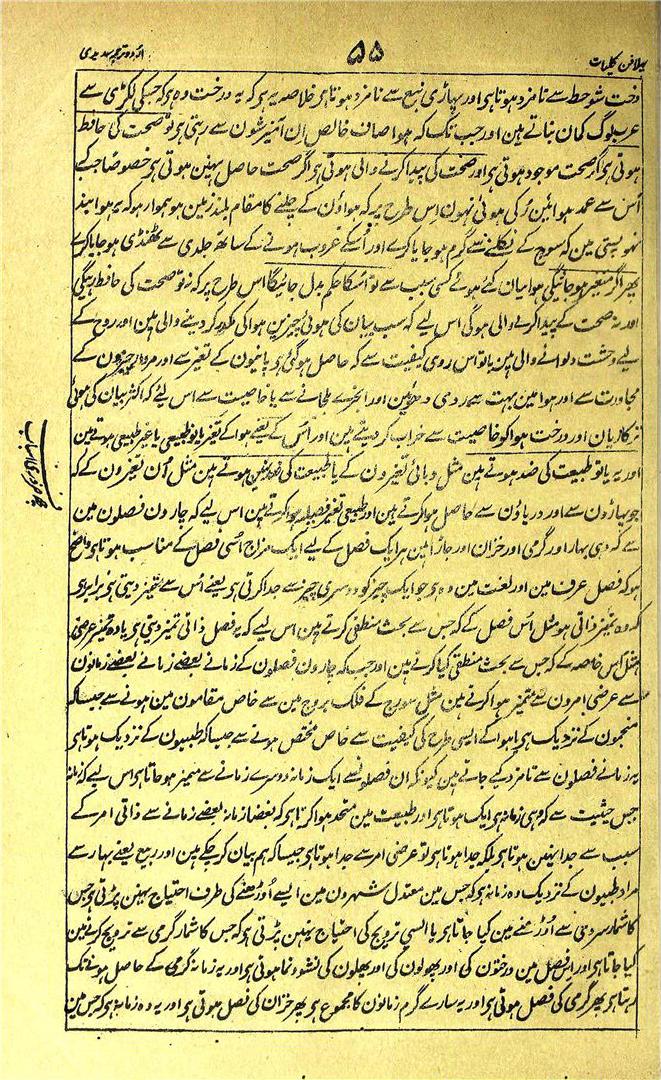 پہلا فن کلیات
۵۵
اردو ترجمہ سدیدی
درخت شوحط سے نامزد ہوتا ہی اور پہاڑی نبع سے نامزد ہوتا ہی خلاصہ یہ ہی کہ یہ درخت وہ ہی کہ جسکی لکڑی سے
عرب لوگ کمان بناتے ہین اور جب تک کہ ہوا صاف خالص ان آمیزشون سے رہتی ہی تو صحت کی حافظ
ہوتی ہی اگر صحت موجود ہوتی ہی اور صحت کی پیدا کرنے والی ہوتی ہی اگر صحت حاصل نہین ہوتی ہی خصوصاً جب کے
اُس سے عمدہ ہوائین رُکی ہوئی نہون اس طرح پر کہ ہواؤن کے چلنے کا مقام بلند زمین ہو ہموار ہو کہ یہ ہوا بند
نہو پستی مین کہ سورج کے نکلنے سے گرم ہو جایا کرے اور اُسکے غروب ہونے کے ساتھ جلدی سے ٹھنڈی ہو جایا کرے
پھر اگر متغیر ہو جائیگی ہوا بیان کئے ہوئے کسی سبب سے تو اُسکا حکم بدل جائیگا اس طرح پر کہ نہ تو صحت کی حافظ رہیگی
اور نہ صحت کے پیدا کرنے والی ہوگی اس لیے کہ سب بیان کی ہوئی چیزین ہوا کی مکدر کر دینے والی ہین اور روح کے
لیے وحشت دلوانے والی ہین یا تو اس ردی کیفیت سے کہ حاصل ہو گئی ہی پانیون کے تغیر سے اور مردار چیزون کے
مجاورت سے اور ہوا مین بہت سے ردی دھوئین اور ابخرے ملجانے سے یا خاصیت سے اس لئے کہ اکثر بیان کی ہوئی
ترکاریان اور درخت ہوا کو خاصیت سے خراب کر دیتے ہین اور اُس کے یعنے ہوا کے تغیر یا تو طبیعی یا غیر طبیعی ہوتے ہین
اور یہ یا تو طبیعت کی ضد ہوتے ہین مثل وبائی تغیرون کے یا طبیعت کی ضد نہین ہوتے ہین مثل اُن تغیرون کے کہ
جو پہاڑون سے اور دریاؤن سے حاصل ہوا کرتے ہین اور طبیعی تغیر فصلیہ ہوا کرتے ہین اس لیے کہ چارون فصلون مین
سے کہ وہی بہار اور گرمی اور خزان اور جاڑا ہین ہر ایک فصل کے لیے ایک مزاج اُسی فصل کے مناسب ہوتا ہی واضح
ہو کہ فصل عرف مین اور لغت مین وہ ہی جو ایک چیز کو دوسری چیز سے جدا کرتی ہی یعنے اُس سے تمیز دیتی ہی برابر ہی
کہ وہ تمیز ذاتی ہو مثل اُس فصل کے کہ جس سے بحث منطقی کرتے ہین اس لیے کہ یہ فصل ذاتی تمیز دیتی ہی یا وہ تمیز عرضی
مثل اُس خاصہ کے کہ جس سے بحث منطقی کیا کرتے ہین اور جب کہ چارون فصلون کے زمانے بعضے زمانے بعضے زمانون
سے عرضی امرون سے متمیز ہوا کرتے ہین مثل سورج کے فلک بروج مین سے خاص مقامون مین ہونے سے جیسا کہ
منجمون کے نزدیک ہی یا ہوا کے ایسی طرح کی کیفیت سے خاص مختص ہونے سے جیسا کہ طبیبون کے نزدیک ہوتا ہی
یہ زمانے فصلون سے نامزد کیے جاتے ہین کیونکہ ان فصلونسے ایک زمانہ دوسرے زمانے سے متمیز ہو جاتا ہی اس لیے کہ زمانہ
جس حیثیت سے کہ وہی زمانہ ہی ایک ہوتا ہی اور طبیعت مین متحد ہوا کرتا ہی کہ بعضا زمانہ بعضے زمانے سے ذاتی امر کے
سبب سے جدا نہین ہوتا ہی بلکہ جدا ہوتا ہی تو عرضی امر سے جدا ہوتا ہی جیسا کہ ہم بیان کر چکے ہین اور ربیع یعنے بہار سے
مراد طبیبون کے نزدیک وہ زمانہ ہی کہ جس مین معتدل شہرون مین ایسے اُوڑھنے کی طرف احتیاج نہین پڑتی ہی جس
کا شمار سردی سے اُوڑھنے مین کیا جاتا ہی یا ایسی ترویح کی احتیاج نہین پڑتی ہی کہ جس کا شمار گرمی سے ترویح کرنے مین
کیا جاتا ہی اور اس فصل مین درختون کی اور پھولون کی اور پھلون کی نشوونما ہوتی ہی اور یہ زمانہ گرمی کے حاصل ہونے تک
رہتا ہی پھر گرمی کی فصل ہوتی ہی اور یہ سارے گرم زمانون کا مجموع ہی پھر خزان کی فصل ہوتی ہی اور یہ وہ زمانہ ہی کہ جس مین